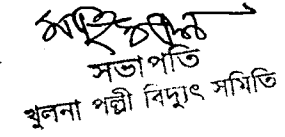 সভাপতি
খুলনা পল্লী বিদ্যুৎ সমিতি